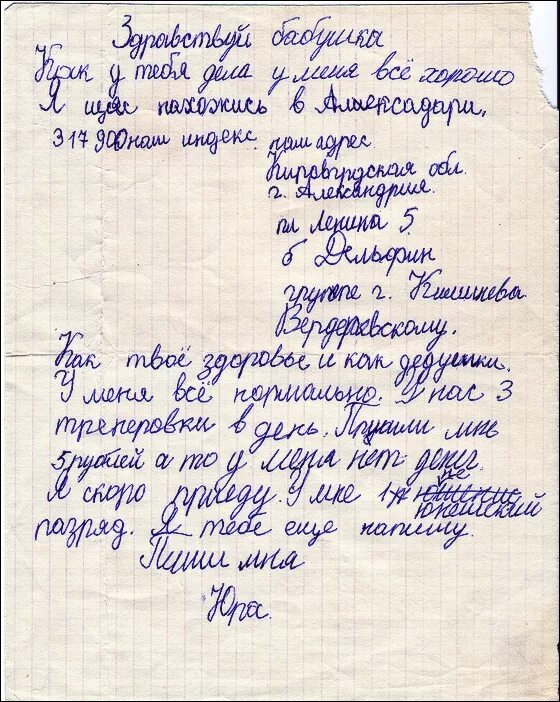 Здравствуй бабушка
Как у тебя дела у меня всё хорошо
Я щяс нахожись в Алаексадари.
317900 наш индекс. наш адрес.
Кировградская обл.
г. Александрия.
пл Ленина 5.
б Дельфин
групепе г. Кишинева
Вердеревскому.
Как твоё здоровье и как дедушки.
У меня всё нормально. У нас 3
тренеровки в день. Пришли мне
5 рублей а то у меня нет денег.
Я скоро приеду. У мне 1й
юнешский
разряд. Я тебе еще напишу.
Пиши мня
Юра.